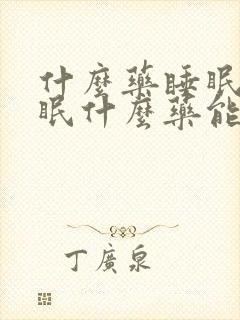 什麼藥睡眠
眠什麼藥能
丁廣泉